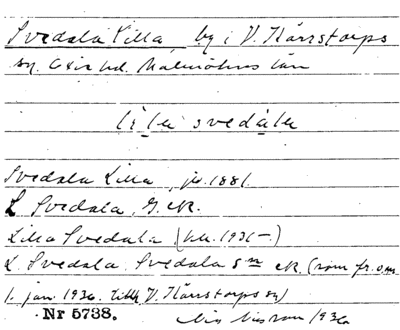 Svedala Lilla, by i V. Kärrstorps
sn. Oxie hd. Malmöhus län
lila svedala
Svedala Lilla, jb. 1881.
L Svedala, G. ek.
Lilla Svedala (1931–)
L. Svedala Svedala sn ek. (som fr. o. m.
1. jan. 1936 V. Kärrstorps sn)
Nr 5738.
Nilsson 1936